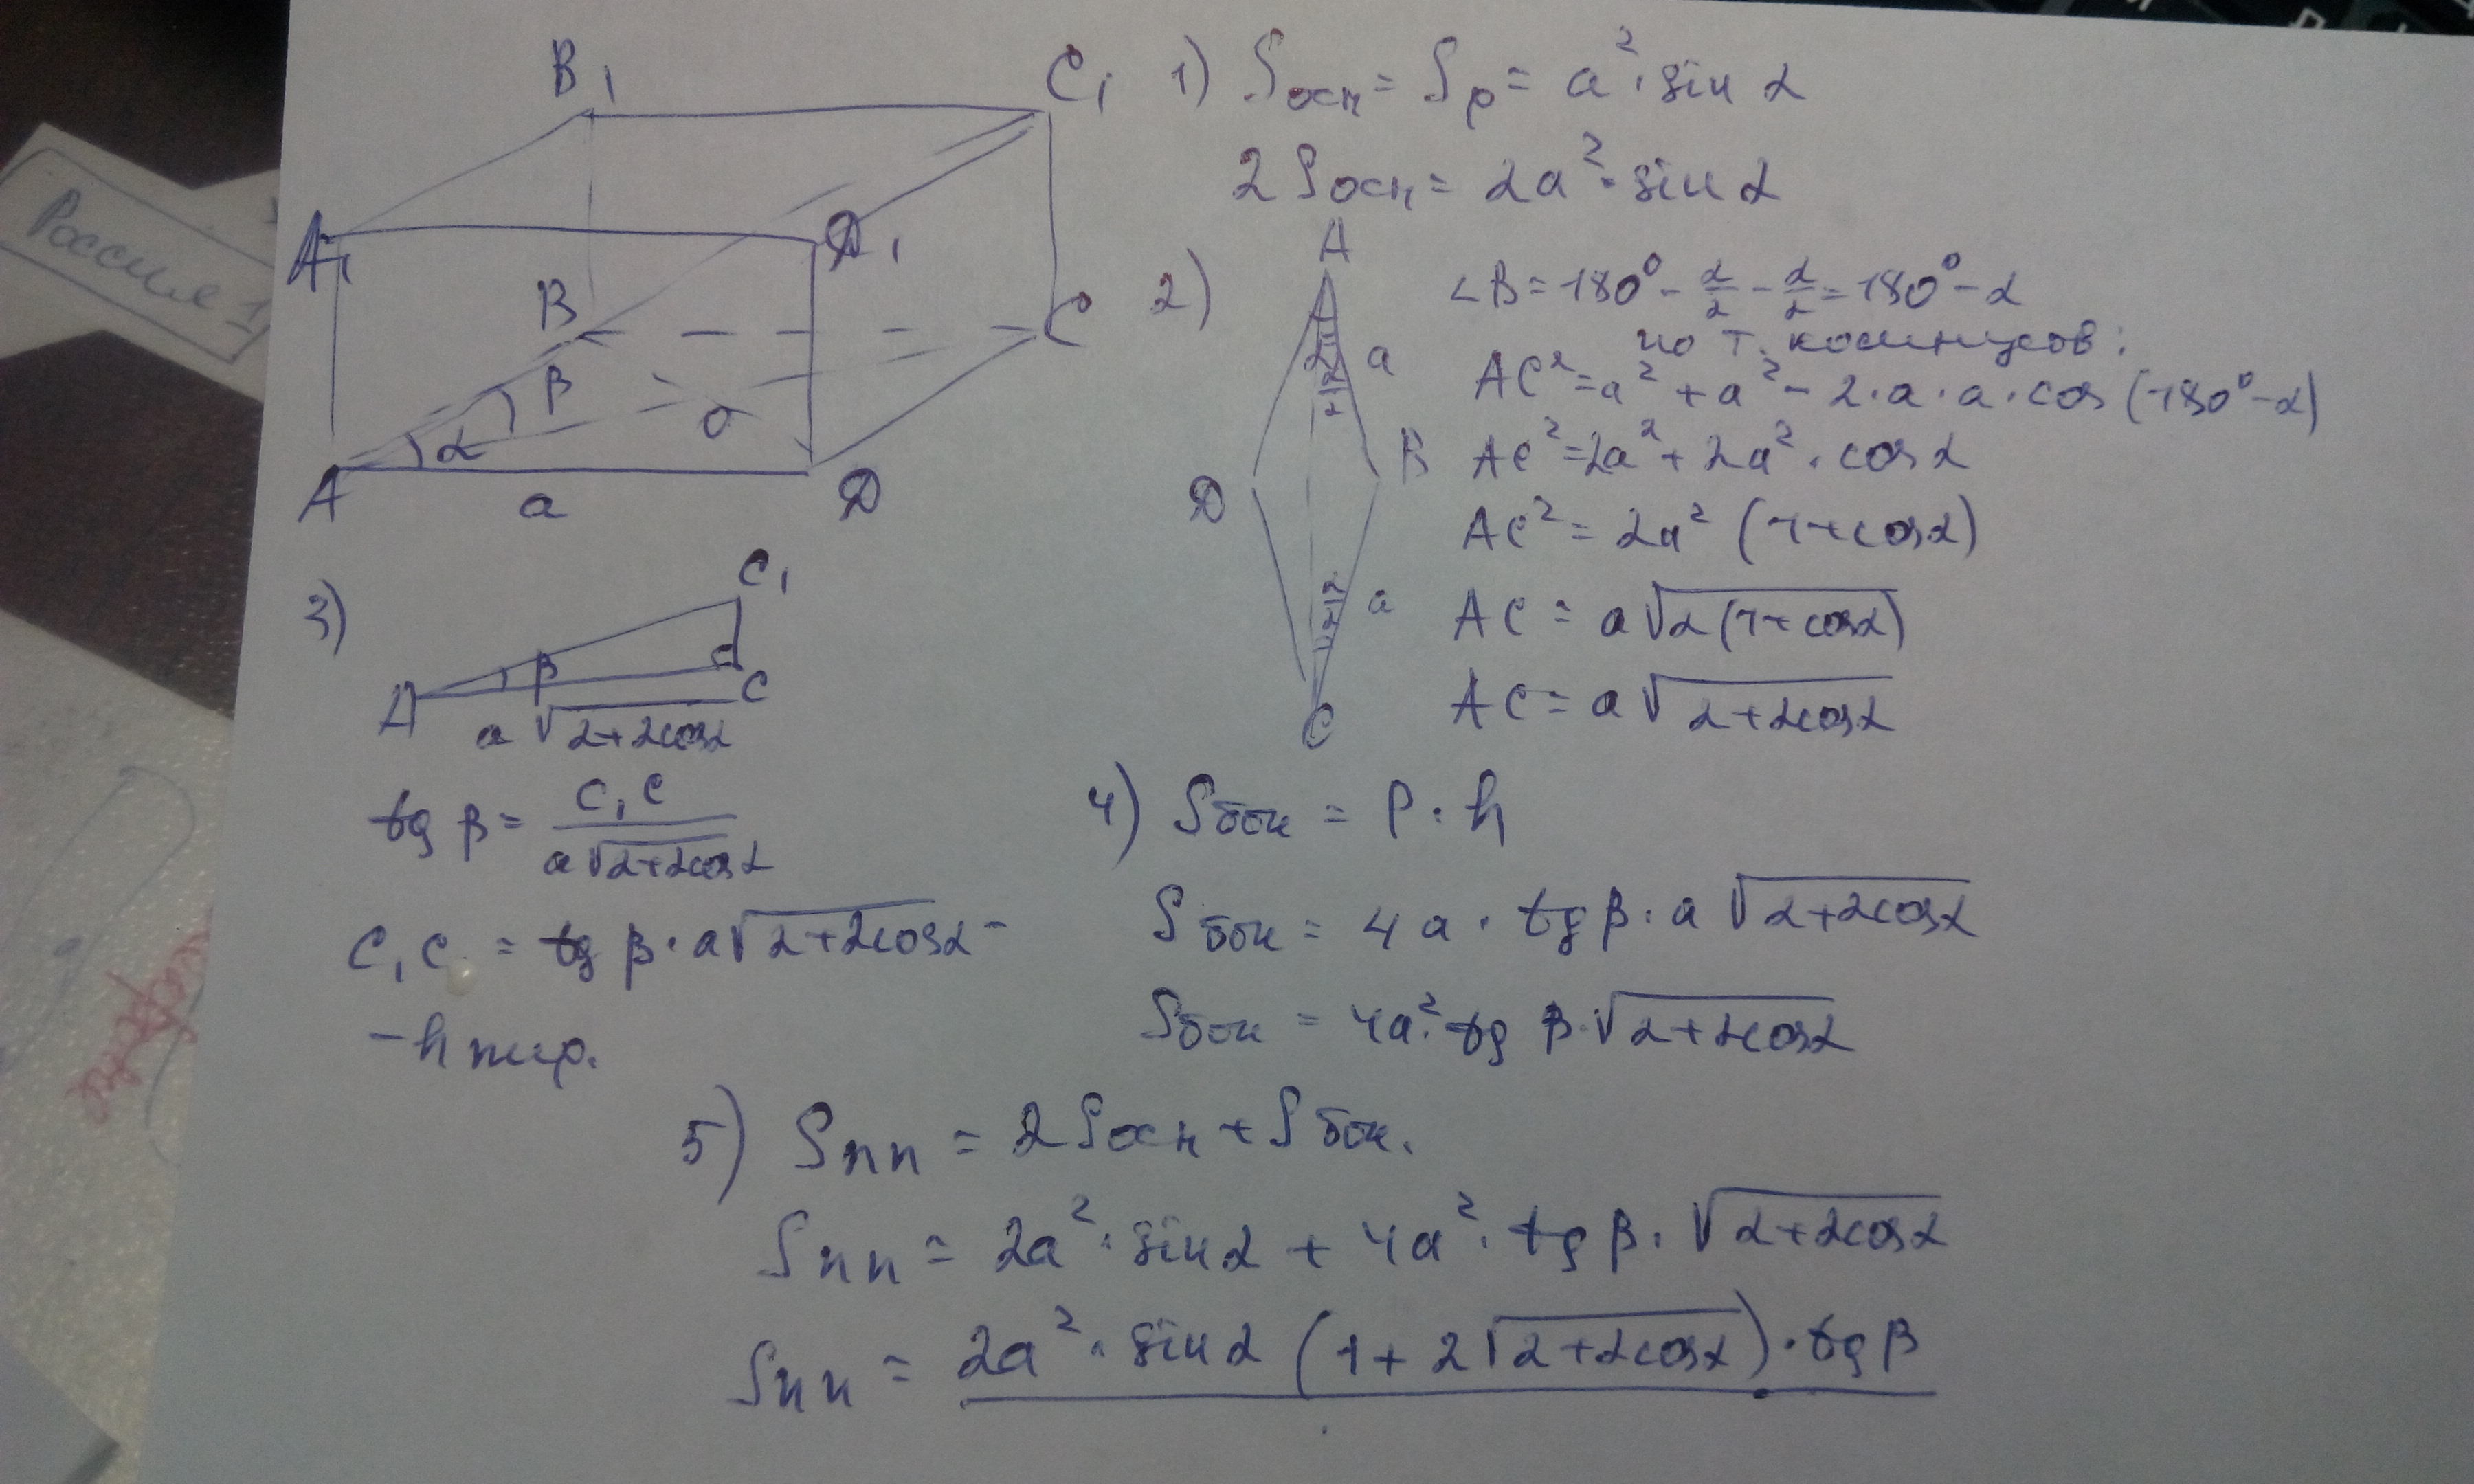 Россия 1
B₁
C₁
A₁
D₁
B
C
β
α
O
A
a
D
1) Sосн = Sр = a² · sin α
2Sосн = 2a² · sin α
2)
A
a
D
B
a
C
∠B = 180° - α/2 - α/2 = 180° - α
по т. косинусов:
AC² = a² + a² - 2 · a · a · cos (180° - α)
AC² = 2a² + 2a² · cos α
AC² = 2a² (1 + cos α)
AC = a√(2(1 + cos α))
AC = a√(2 + 2cos α)
3)
C₁
A
β
C
a√(2 + 2cos α)
tg β = C₁C / a√(2 + 2cos α)
C₁C = tg β · a√(2 + 2cos α) -
- h пир.
4) Sбок = P · h
Sбок = 4a · tg β · a√(2 + 2cos α)
Sбок = 4a² · tg β · √(2 + 2cos α)
5) Sпп = 2Sосн + Sбок.
Sпп = 2a² · sin α + 4a² · tg β · √(2 + 2cos α)
Sпп = 2a² · sin α (1 + 2√(2 + 2cos α)) · tg β